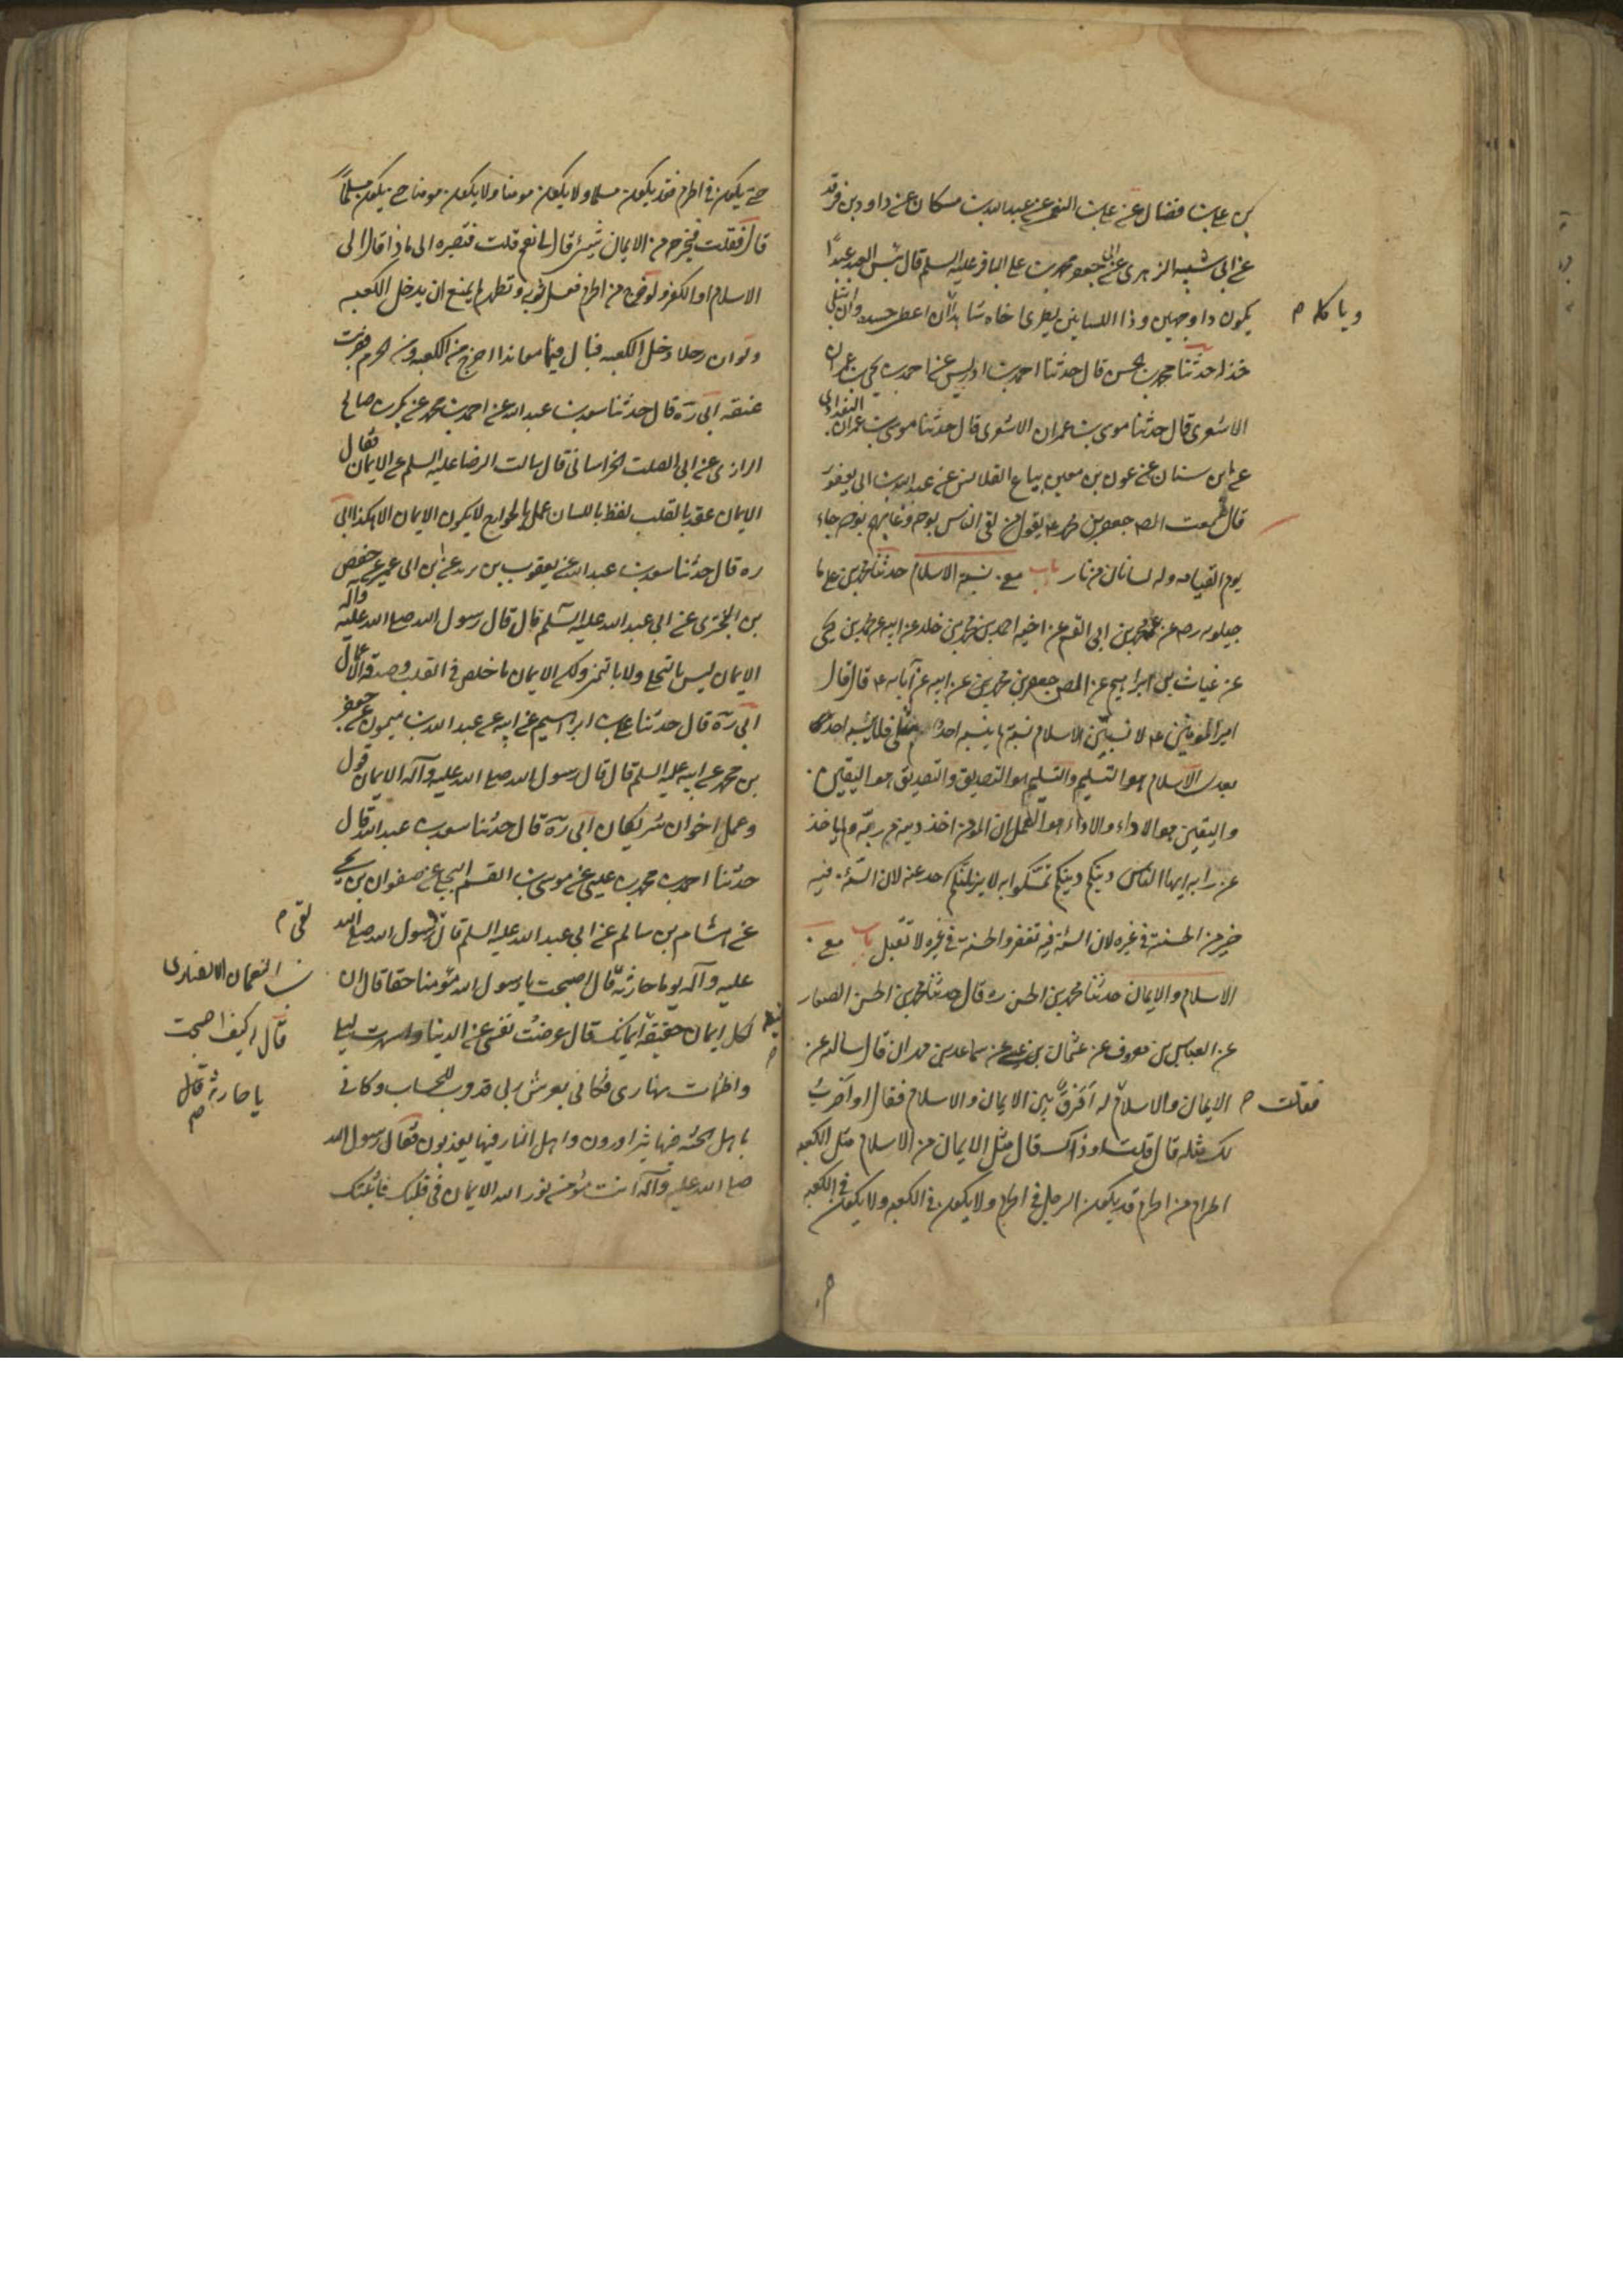 بن علي بن فضال عن علي بن النعمان عن عبدالله بن مسكان عن داود بن فرقد
عن ابى شيبة الزهرى عن ابى جعفر محمد بن علي الباقر عليه السلم قال بئس العبد عبدًا
يكون ذا وجهين وذا اللسانين يطرى اخاه شاهدا ان اعطى حسده وان ابتلى
وياكله م
خذله حدثنا محمد بن الحسن قال حدثنا احمد بن ادريس عن احمد بن يحيى بن عمران
الاشعرى قال حدثنا موسى بن عمران الاشعرى قال حدثنا موسى بن عمران البغدادى
عن ابن سنان عن عون بن معين بياع القلانس عن عبدالله بن ابى يعفور
قال سمعت الصـ جعفر بن محمد ع يقول من لقى الناس بوجه وغابهم بوجه جاء
يوم القيامه وله لسانان من نار باب مع نسبة الاسلام حدثنا محمد بن علي ما
جيلويه رحـ عن عمه محمد بن ابى القسم عن اخيه احمد بن محمد بن خالد عن ابيه عن محمد بن يحيى
عن غياث بن ابراهيم عن الصـ جعفر بن محمد عن ابيه عن آبائه ع قال قال
امير المؤمنين ع لانسبنّ الاسلام نسبة لم ينسبه احد قبلى ولا ينسبه احد
بعدى الاسلام هو التسليم والتسليم هو التصديق والتصديق هو اليقين
واليقين هو الاداء والاداء هو العمل ان المؤمن اخذ دينه عن ربّه ولم ياخذ
عن رايه ايها الناس دينكم دينكم تمسكوا به لا يزيلنكم احد عنه لان السيّئة فيه
خير من الحسنة فى غيره لان السيئة فيه تغفر والحسنة فى غيره لا تقبل باب مع
الاسلام والايمان حدثنا محمد بن الحسن ره قال حدثنا محمد بن الحسن الصفار
عن العباس بن معروف عن عثمان بن عيسى عن سماعة بن مهران قال سالته عن
الايمان والاسلام له أفرقٌ بين الايمان والاسلام فقال او اضربُ
فقلت م
لك مثله قال قلت او ذاك قال مثل الايمان من الاسلام مثل الكعبه
الحرام من الحرم قد يكون الرجل فى الحرم ولا يكون فى الكعبه ولا يكون فى الكعبه
حتى يكون فى الحرم فقد يكون مسلما ولا يكون مومنا ولا يكون مومنا حتى يكون مسلمًا
قال فقلت فيخرجه من الايمان شيئ قال لى نعم قلت فتصيره الى ماذا قال الى
الاسلام او الكفر ولو خرج من الحرم فغسل ثوبه وتطهر لم يمنع ان يدخل الكعبه
ولو ان رجلا دخل الكعبه فبال فيها معاندا اخرج من الكعبه ومن الحرم فضربت
عنقه ابى رَه قال حدثنا سعد بن عبد الله عن احمد بن محمد عن بكر بن صالح
الرازى عن ابى الصلت الخراسانى قال سالت الرضا عليه السلم عن الايمان فقال
الايمان عقد بالقلب لفظ باللسان عمل بالجوارح لا يكون الايمان الا هكذا ابى
ره قال حدثنا سعد بن عبد الله عن يعقوب بن يزيد عن ابن ابى عمير عن حفص
بن البخترى عن ابى عبد الله عليه السلم قال قال رسول الله صلى الله عليه وآله
الايمان ليس بالتحلى ولا بالتمنى ولكن الايمان ما خلص فى القلب وصدقه الاعمال
ابى رَه قال حدثنا علي بن ابراهيم عن ابيه عن عبد الله بن ميمون عن جعفر
بن محمد عن ابيه عليه السلم قال قال رسول الله صلى الله عليه وآله الايمان قول
وعمل اخوان شريكان ابى رَه قال حدثنا سعد بن عبد الله قال
حدثنا احمد بن محمد بن عيسى عن موسى بن القسم البجلى عن صفوان بن يحيى
عن هشام بن سالم عن ابى عبد الله عليه السلم قال رسول الله صلى الله
لقى م
عليه وآله يوما حارثة قال اصبحت يا رسول الله مؤمنا حقا قال ان
بن النعمان الانصارى
قال له كيف اصبحت
يا حارثه قال م
لكل ايمان حقيقة ايمانك قال عرضت نفسى عن الدنيا واسهرت ليلى
واظمات نهارى فكانى بعرش ربى قد قرب للحساب وكانى
باهل الجنه فيها يتزاورون واهل النار فيها يعذبون فقال رسول الله
صلى الله عليه وآله انت مؤمن نور الله الايمان فى قلبك فاثبتك